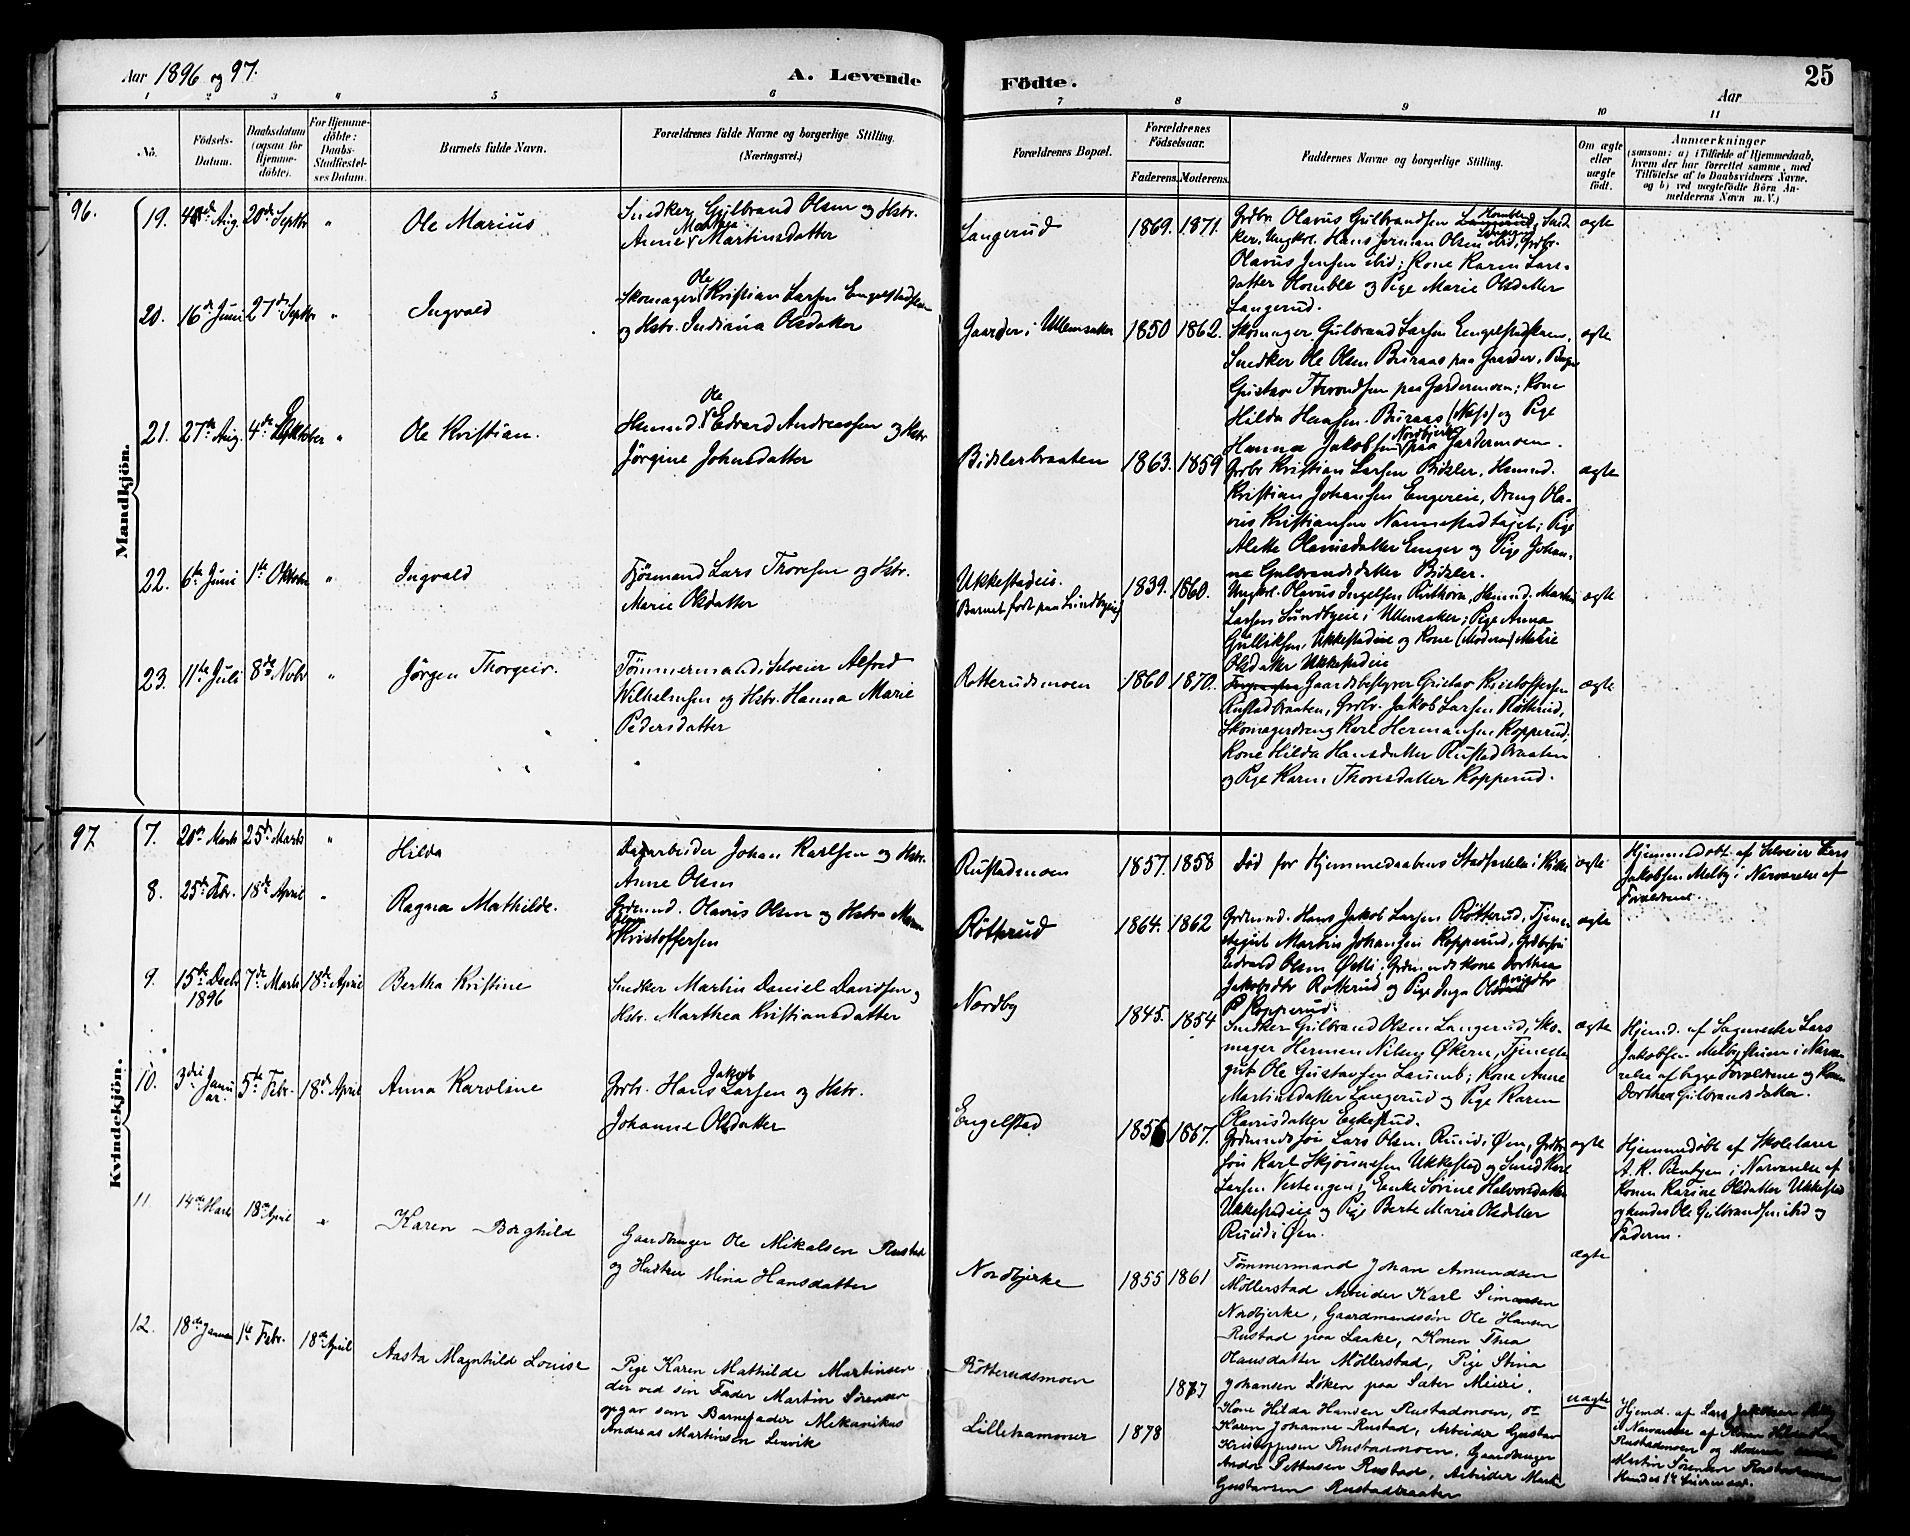 Aar 1896 og 97.
A. Levende
Födte.
25
Aar
1 2 3 4 5 6 7 8 9 10 11
No.
Födsels-
Datum.
Daabsdatum
(ogsaa for
Hjemme-
döbte).
For Hjemme-
döbte:
Daabs-
Stadfæstel-
ses Datum.
Barnets fulde Navn.
Forældrenes fulde Navne og borgerlige Stilling.
(Næringsvei.)
Forældrenes Bopæl.
Forældrenes
Födselsaar.
Faderens. Moderens.
Faddernes Navne og borgerlige Stilling.
Om ægte
eller
uægte
födt.
Anmærkninger
(saasom: a) i Tilfælde af Hjemmedaab,
hvem der har forrettet samme, med
Tilföielse af to Daabsvidners Navne,
og b) ved uægtefödte Börn An-
melderens Navn m. V.)
Mandkjön.
96.
19. 4de Aug. 20de Septbr " Ole Marius
Snedker Gulbrand Olsen og Hstr.
Anne Mathea Martinsdatter
Langerud 1869. 1871.
Grdbr. Olavus Gulbrandsen Homble, Sned-
ker, Ungkrl. Hans Jorman Olsen ibid, Grdbr.
Olavus Jensen ibid; Kone Karen Lars-
datter Homble og Pige Marie Olsdatter
Langerud.
ægte
20. 16de Juni 27de Septbr " Ingvald
Skomager Ole Kristian Larsen Engelstad
og Hstr. Indiana Olsdatter
Gaarder i Ullensaker 1850 1862.
Skomager Gulbrand Larsen Engelstad,
Snedker Ole Olsen Buraas paa Gaarder,
Gustav Throndsen paa Gardermoen; Kone
Hilda Hansen Buraas (Næss) og Pige
Hanna Jakobsen Nordbjerke paa Gardermoen.
ægte
21. 27de Aug. 4de Oktober " Ole Kristian.
Husmd. Ole Edvard Andreassen og Hstr
Jörgine Johnsdatter
Bidslerbraaten 1863. 1859
Grdbr Kristian Larsen Bidsler, Husmd.
Kristian Johansen Engereie, Dreng Ola-
vus Kristiansen Nannestadlaget; Pige
Alette Olavusdatter Enger og Pige Johan-
ne Gulbrandsdatter Bidsler.
ægte
22. 6te Juni 1ste Oktober " Ingvald
Fjösmand Lars Thoresen og Hstr.
Marie Olsdatter
Ukkestadeie.
(Barnet födt paa Sundbyeie)
1839. 1860.
Ungkrl. Olavus Ingelsen Risthorn, Husmd. Martin
Larsen Sundbyeie i Ullensaker; Pige Anna
Gulliksen, Ukkestadeie og Kone (Moderen) Marie
Olsdatter Ukkestadeie
ægte
23. 11te Juli 8de Novbr " Jörgen Thorgeir.
Tömmermand, Selveier Alfred
Wilhelmsen og Hstr. Hanna Marie
Pedersdatter
Rötterudsmoen 1860 1870.
Gaardsbestyrer Gustav Kristoffersen
Rustadbraaten, Grdbr. Jakob Larsen Rötterud,
Skomagerdreng Karl Hermansen Kopperud,
Kone Hilda Hansdatter Rustadbraaten
og Pige Karen Thorsdatter Kopperud.
ægte
Kvindekjön.
97
7. 20de Marts 25de Marts " Hilda
Dagarbeider Johan Karlsen og Hstr.
Anne Olsen
Rustadmoen 1857. 1858
Död för Hjemmedaabens Stadfæstelse i Kirke
ægte
Hjemmedöbt af Selveier Lars
Jakobsen Melby i Nærværelse af
Forældrene.
8. 25de Febr. 18de April " Ragna Mathilde.
Grdmand. Olavus Olsen og Hstr Maren
Kristoffersen
Rötterud 1864. 1862
Grdmand. Hans Jakob Larsen Rötterud, Tjene-
stegut Martin Johansen Kopperud, Grdbrsön
Edvard Olsen Östli; Grdmandskone Dorthea
Jakobsdtr Rötterud og Pige Inga
Kopperud.
ægte
9. 15de Decbr
1896
7de Marts 18de April Bertha Kristine
Snedker Martin Daniel Davidsen og
Hstr. Marthea Kristiansdatter
Nordby 1845. 1854
Snedker Gulbrand Olsen Langerud, Sko-
mager Herman Nilsen Økern, Tjeneste-
gut Ole Gustavsen Laumb; Kone Anne
Martinsdatter Langerud og Pige Karen
Olavusdatter Eckestrud.
ægte
Hjemd. af Sagmester Lars
Jakobsen Melby i Nærvæ-
relse af begge Forældrene og Kone
Dorthea Gulbrandsdatter.
10. 3die Janu
ar.
5te Febr. 18de April Anna Karoline
Grdbr. Hans Jakob Larsen og Hstr.
Johanne Olsdatter
Engelstad 1856 1867.
Grdmandssön Lars Olsen Ruud i Øen, Grdbr.
sön Karl Skjönnesen Ukkestad og Smed Karl
Larsen Vestengen; Enke Sörine Halvorsdatter
Ukkestadeie og Pige Berte Marie Olsdatter
Ruud i Øen.
ægte
Hjemmedöbt af Skolelærer
A. R. i Nærværelse af
Konen Karine Olsdatter Ukkestad
og hendes Ole Gulbrandsen ibid og
Faderen.
11 14de Marts 18de April " Karen Borghild
Gaardbruger Ole Mikalsen Rustad
og Hustru Mina Hansdatter
Nordbjerke 1855 1861
Tömmermand Johan Amundsen
Möllerstad Arbeider Karl Simonsen
Nordbjerke, Gaardmandssön Ole Hansen
Rustad paa Laake, Konen Thea
Hansdatter Möllerstad, Pige Stina
Johansen Löken paa Sæter Meieri.
ægte
12. 18de Januar 1ste Febr. 18de April Aasta Magnhild Louise
Pige Karen Mathilde Martinsen
der ved sin Fader Martin Sörensen
opgav som Barnefader Mekanikus
Andreas Martinsen Lenvik
Rötterudsmoen
Lillehammer 1878 1877
Kone Hilda Hansen Rustadmoen,
Karen Johanne Rustad, Arbeider Gustav
Kristoffersen Rustadmoen, Gaardbruger
Andr. Pettersen Rustad, Arbeider Martin
Gustavsen Rustadbraaten
uægte
Hjemd. af Lars Jakobsen Melby
i Nærværelse af Konen Hilda Hansen
Rustadmoen og Moderens
Martin Sörensen